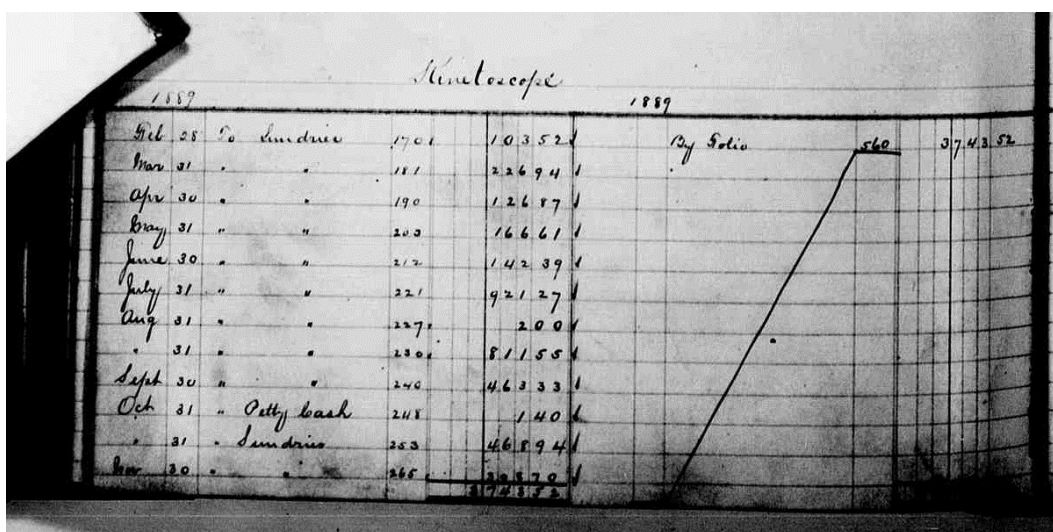 Kinetoscope
1889 1889
Feb 28 To Sundries 170 103 52 By Folio 560 3743 52
Mar 31 " " 181 226 94
Apr 30 " " 190 126 87
May 31 " " 203 166 61
June 30 " " 212 142 39
July 31 " " 221 921 27
Aug 31 " " 227 2 00
" 31 " " 230 811 55
Sept 30 " " 240 463 33
Oct 31 " Petty Cash 248 1 40
" 31 " Sundries 253 468 94
Nov 30 " " 265 308 70
3743 52